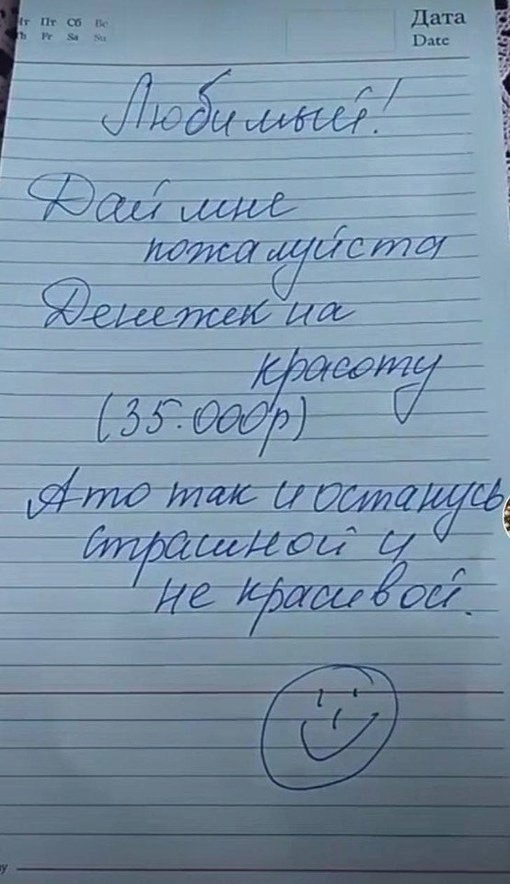 Пт Сб Вс
Fr Sa Su
Дата
Date
Любимый!
Дай мне
пожалуйста
Денежек на
красоту
(35.000р)
А то так и останусь
страшной и
не красивой.